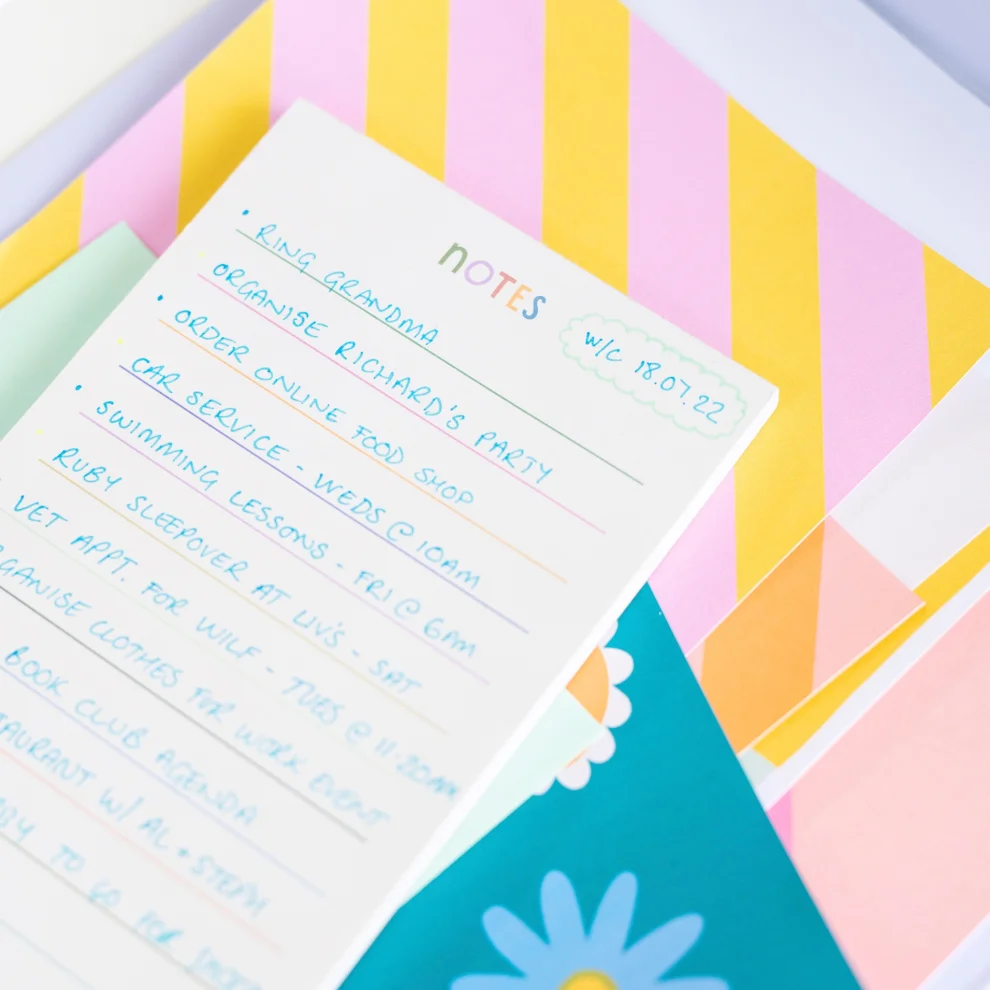 NOTES
W/C 18.07.22
• RING GRANDMA
• ORGANISE RICHARD'S PARTY
• ORDER ONLINE FOOD SHOP
• CAR SERVICE - WEDS @ 10AM
• SWIMMING LESSONS - FRI @ 6PM
• RUBY SLEEPOVER AT LIV'S - SAT
• VET APPT. FOR WILF - TUES @ 11:20AM
CLOTHES FOR WORK EVENT
BOOK CLUB AGENDA
W/ AL + STEPH
TO GO FOR